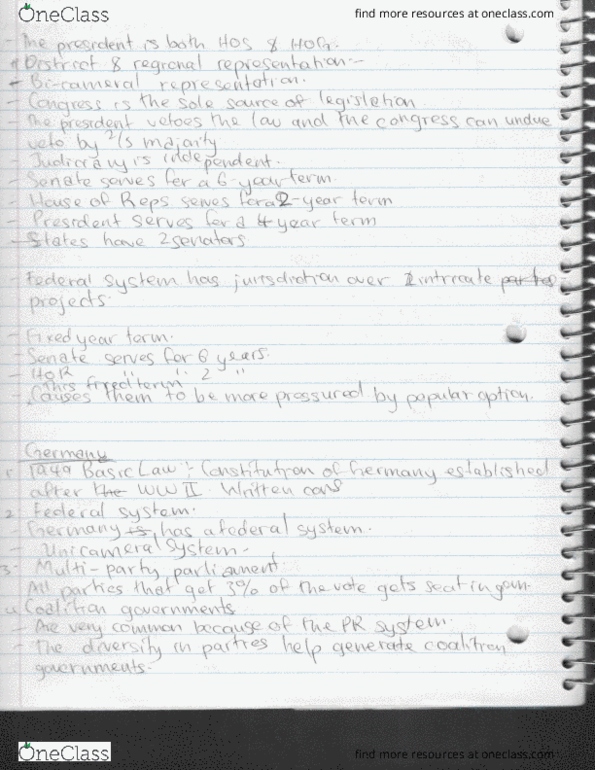 OneClass
find more resources at oneclass.com
- The president is both HOS & HOG.
- District & regional representation:-
- Bi-cameral representation.
- Congress is the sole source of legisletion
- The president vetoes the law and the congress can undue
veto by 2/3 majority
- Judiciary is independent.
- Senate serves for a 6-year term.
- House of Reps serves for a 2-year term
- President serves for a 4 year term
- States have 2 senators
- Federal system has jurisdiction over intricate
projects.
- Fixed year term.
- Senate serves for 6 years.
- HOR " " 2 "
This fixed term
- Causes them to be more pressured by popular option.
Germany
1. 1949 Basic Law:- Constitution of Germany established
after the WW II. Written cons
2. Federal system.
- Germany is has a federal system.
- Unicameral system.
3. Multi-party parliament
All parties that get 3% of the vote gets seat in gov.
4. Coalition governments
- Are very common because of the PR system.
- The diversity in parties help generate coalition
governments.
OneClass
find more resources at oneclass.com